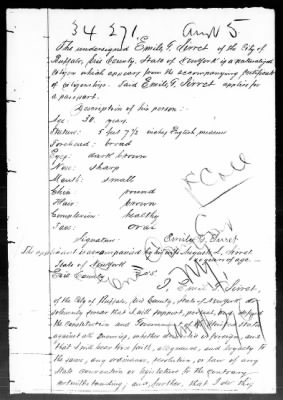 34271
The undersigned Emile G. Serret of the City of
Buffalo, Erie County, State of New York is a naturalized
citizen which appears from the accompanying certificate
of citizenship. Said Emile G. Serret applies for
a passport.
Description of his person:-
Age: 30 years
Stature: 5 feet 7 1/2 inches English measure
Forehead: broad
Eyes: dark brown
Nose: sharp
Mouth: small
Chin round
Hair brown
Complexion healthy
Face: oval
Signature Emile G. Serret
The applicant is accompanied by his wife Serret
years of age.
State of New York
Erie County } S.S.
I, Emile G. Serret,
of the City of Buffalo, Erie County, State of New York, do
solemnly swear that I will support, protect, and defend
the Constitution and Government of the United States
against all enemies, whether domestic or foreign; and
that I will bear true faith, allegiance, and loyalty to
the same, any ordinance, resolution, or law of any
State convention or legislature to the contrary
notwithstanding; and further, that I do this